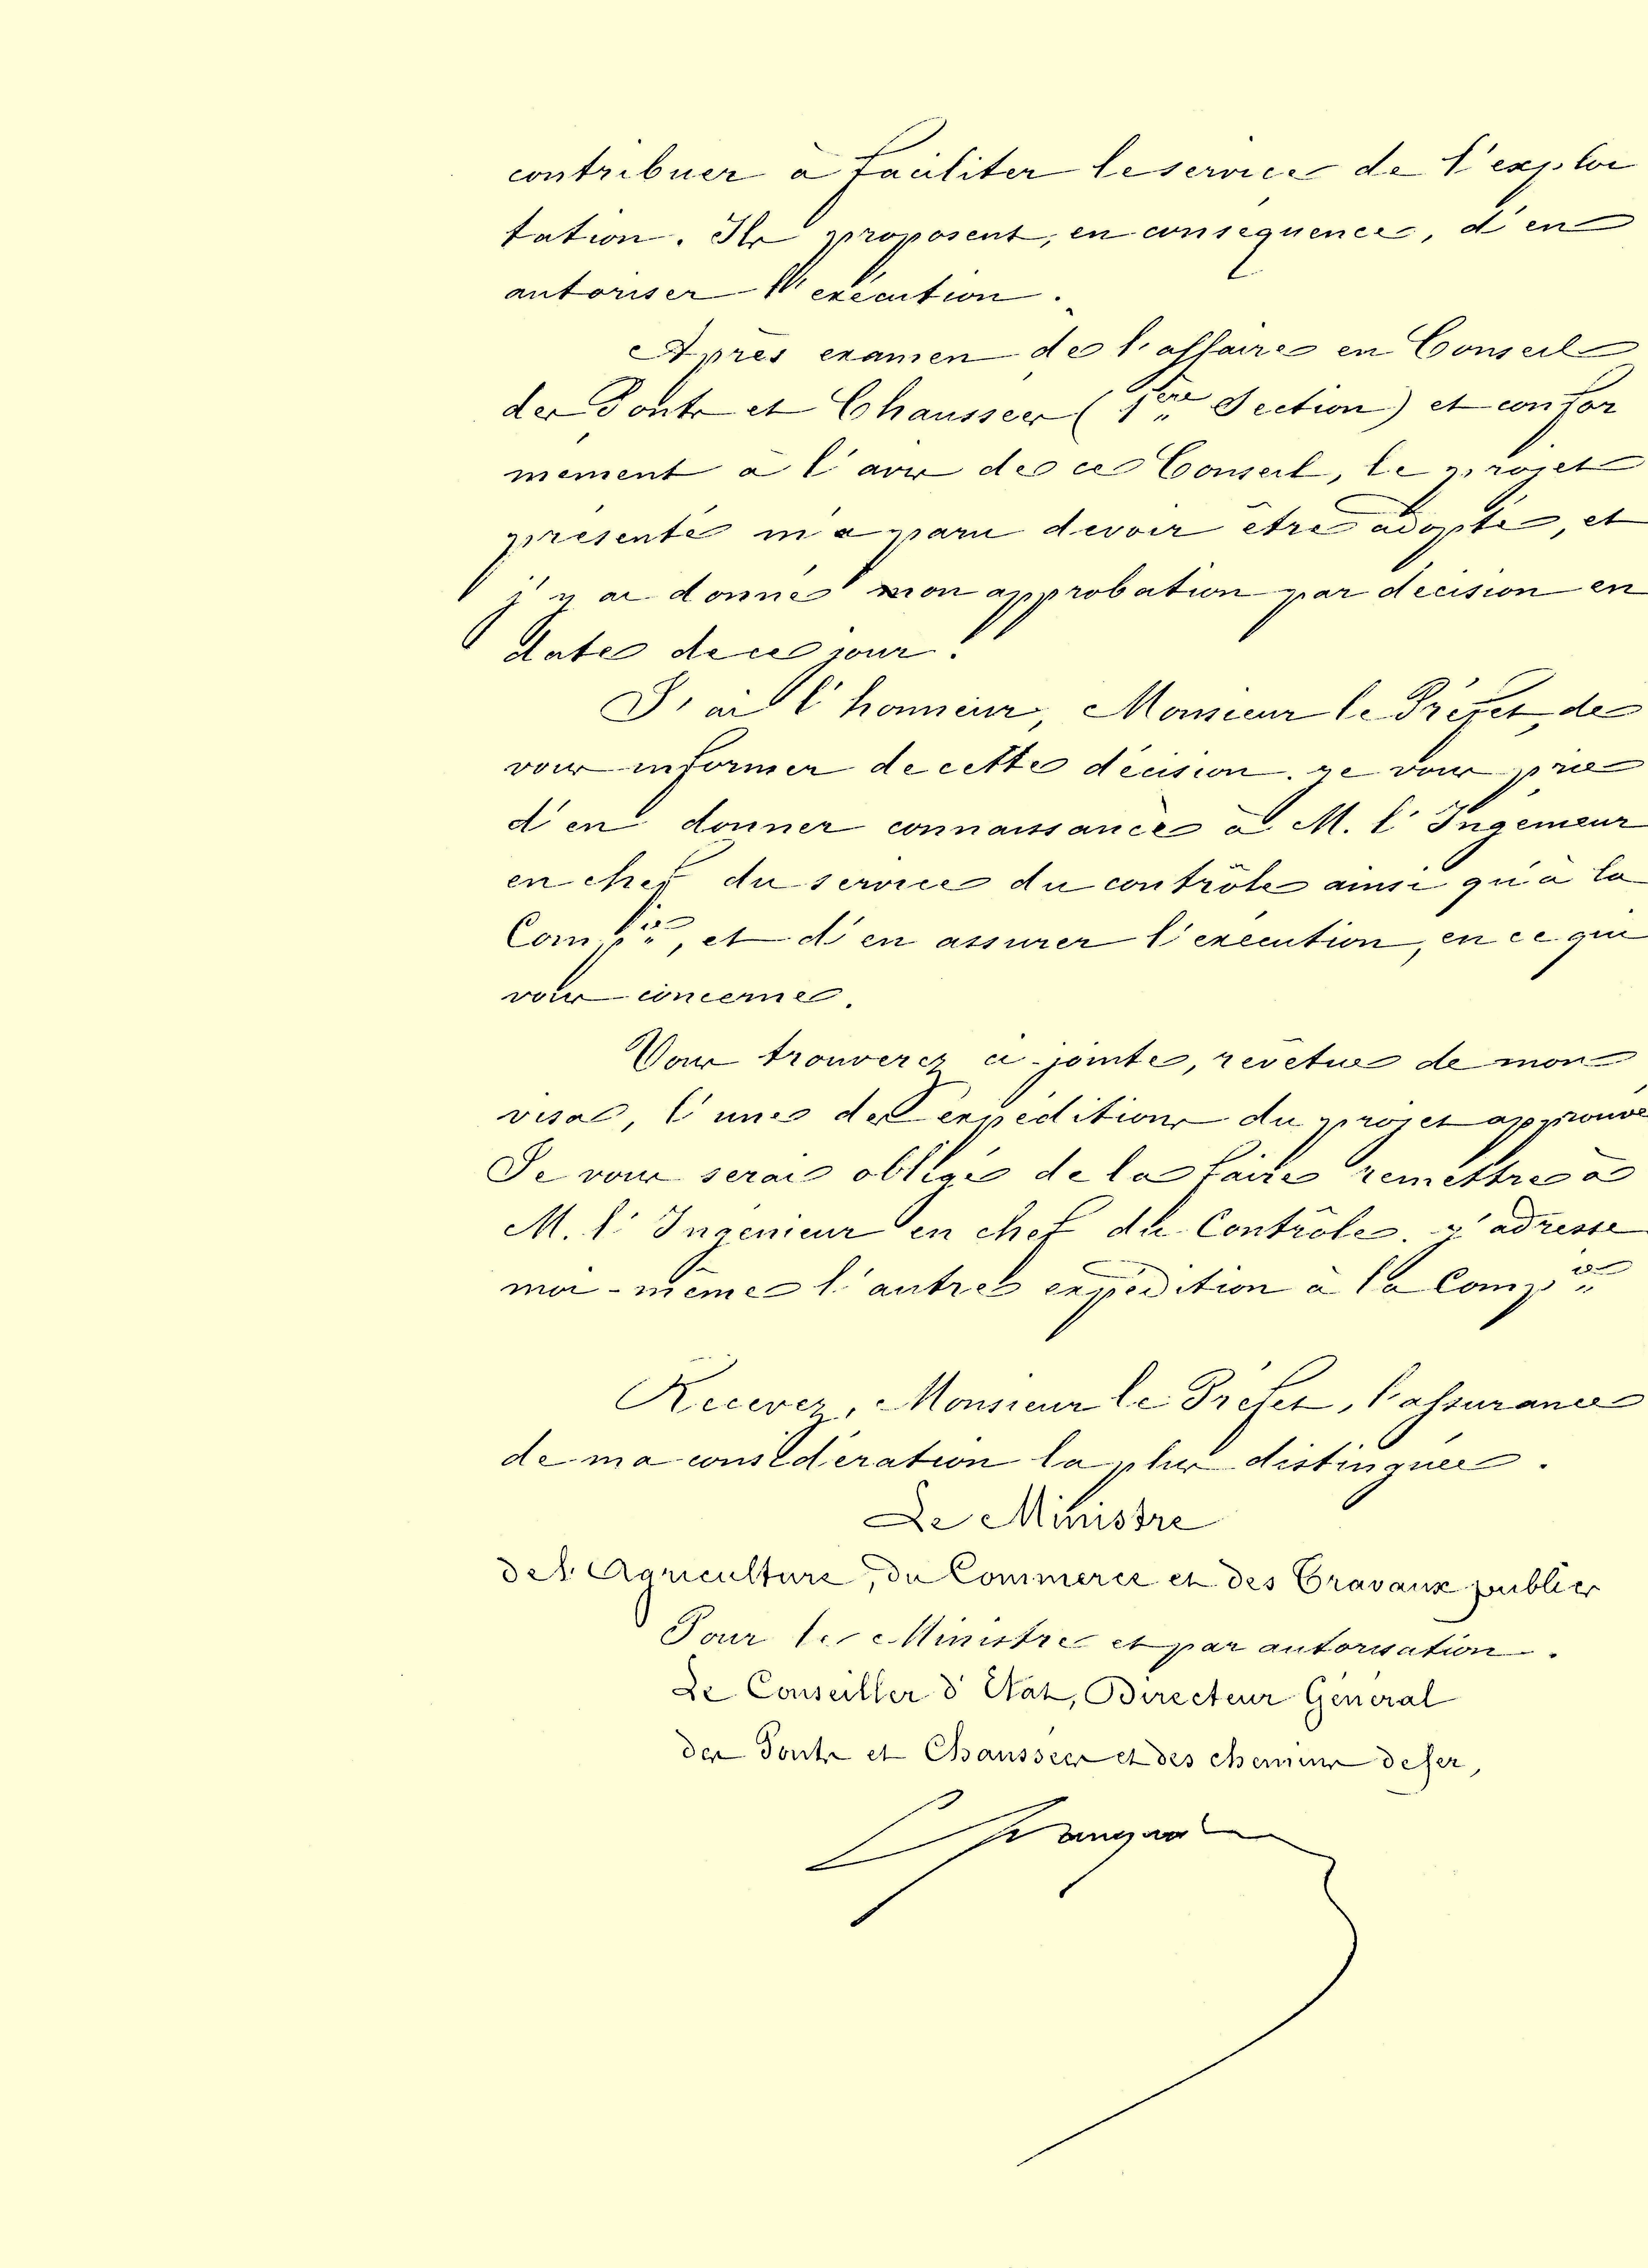 contribuer à faciliter le service de l'exploi
tation. Ils proposent, en conséquence, d'en
autoriser l'exécution.
Après examen de l'affaire en Conseil
des Ponts et Chaussées (1ère Section) et confor
mément à l'avis de ce Conseil, le projet
présenté m'a paru devoir être adopté, et
j'y ai donné mon approbation par décision en
date de ce jour.
J'ai l'honneur, Monsieur le Préfet, de
vous informer de cette décision. Je vous prie
d'en donner connaissance à M. l'Ingénieur
en chef du service du contrôle ainsi qu'à la
Compie, et d'en assurer l'exécution, en ce qui
vous concerne.
Vous trouverez ci-jointe, revêtue de mon
visa, l'une des expéditions du projet approuvé
Je vous serais obligé de la faire remettre à
M. l'Ingénieur en chef du Contrôle. J'adresse
moi-même l'autre expédition à la Compie
Recevez, Monsieur le Préfet, l'assurance
de ma considération la plus distinguée.
Le Ministre
de l'Agriculture, du Commerce et des Travaux publics
Pour le Ministre et par autorisation.
Le Conseiller d'Etat, Directeur Général
des Ponts et Chaussées et des chemins de fer,